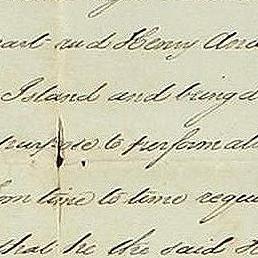 and Henry And
Island and being d
purpose to perform all
from time to time requi
that he the said H